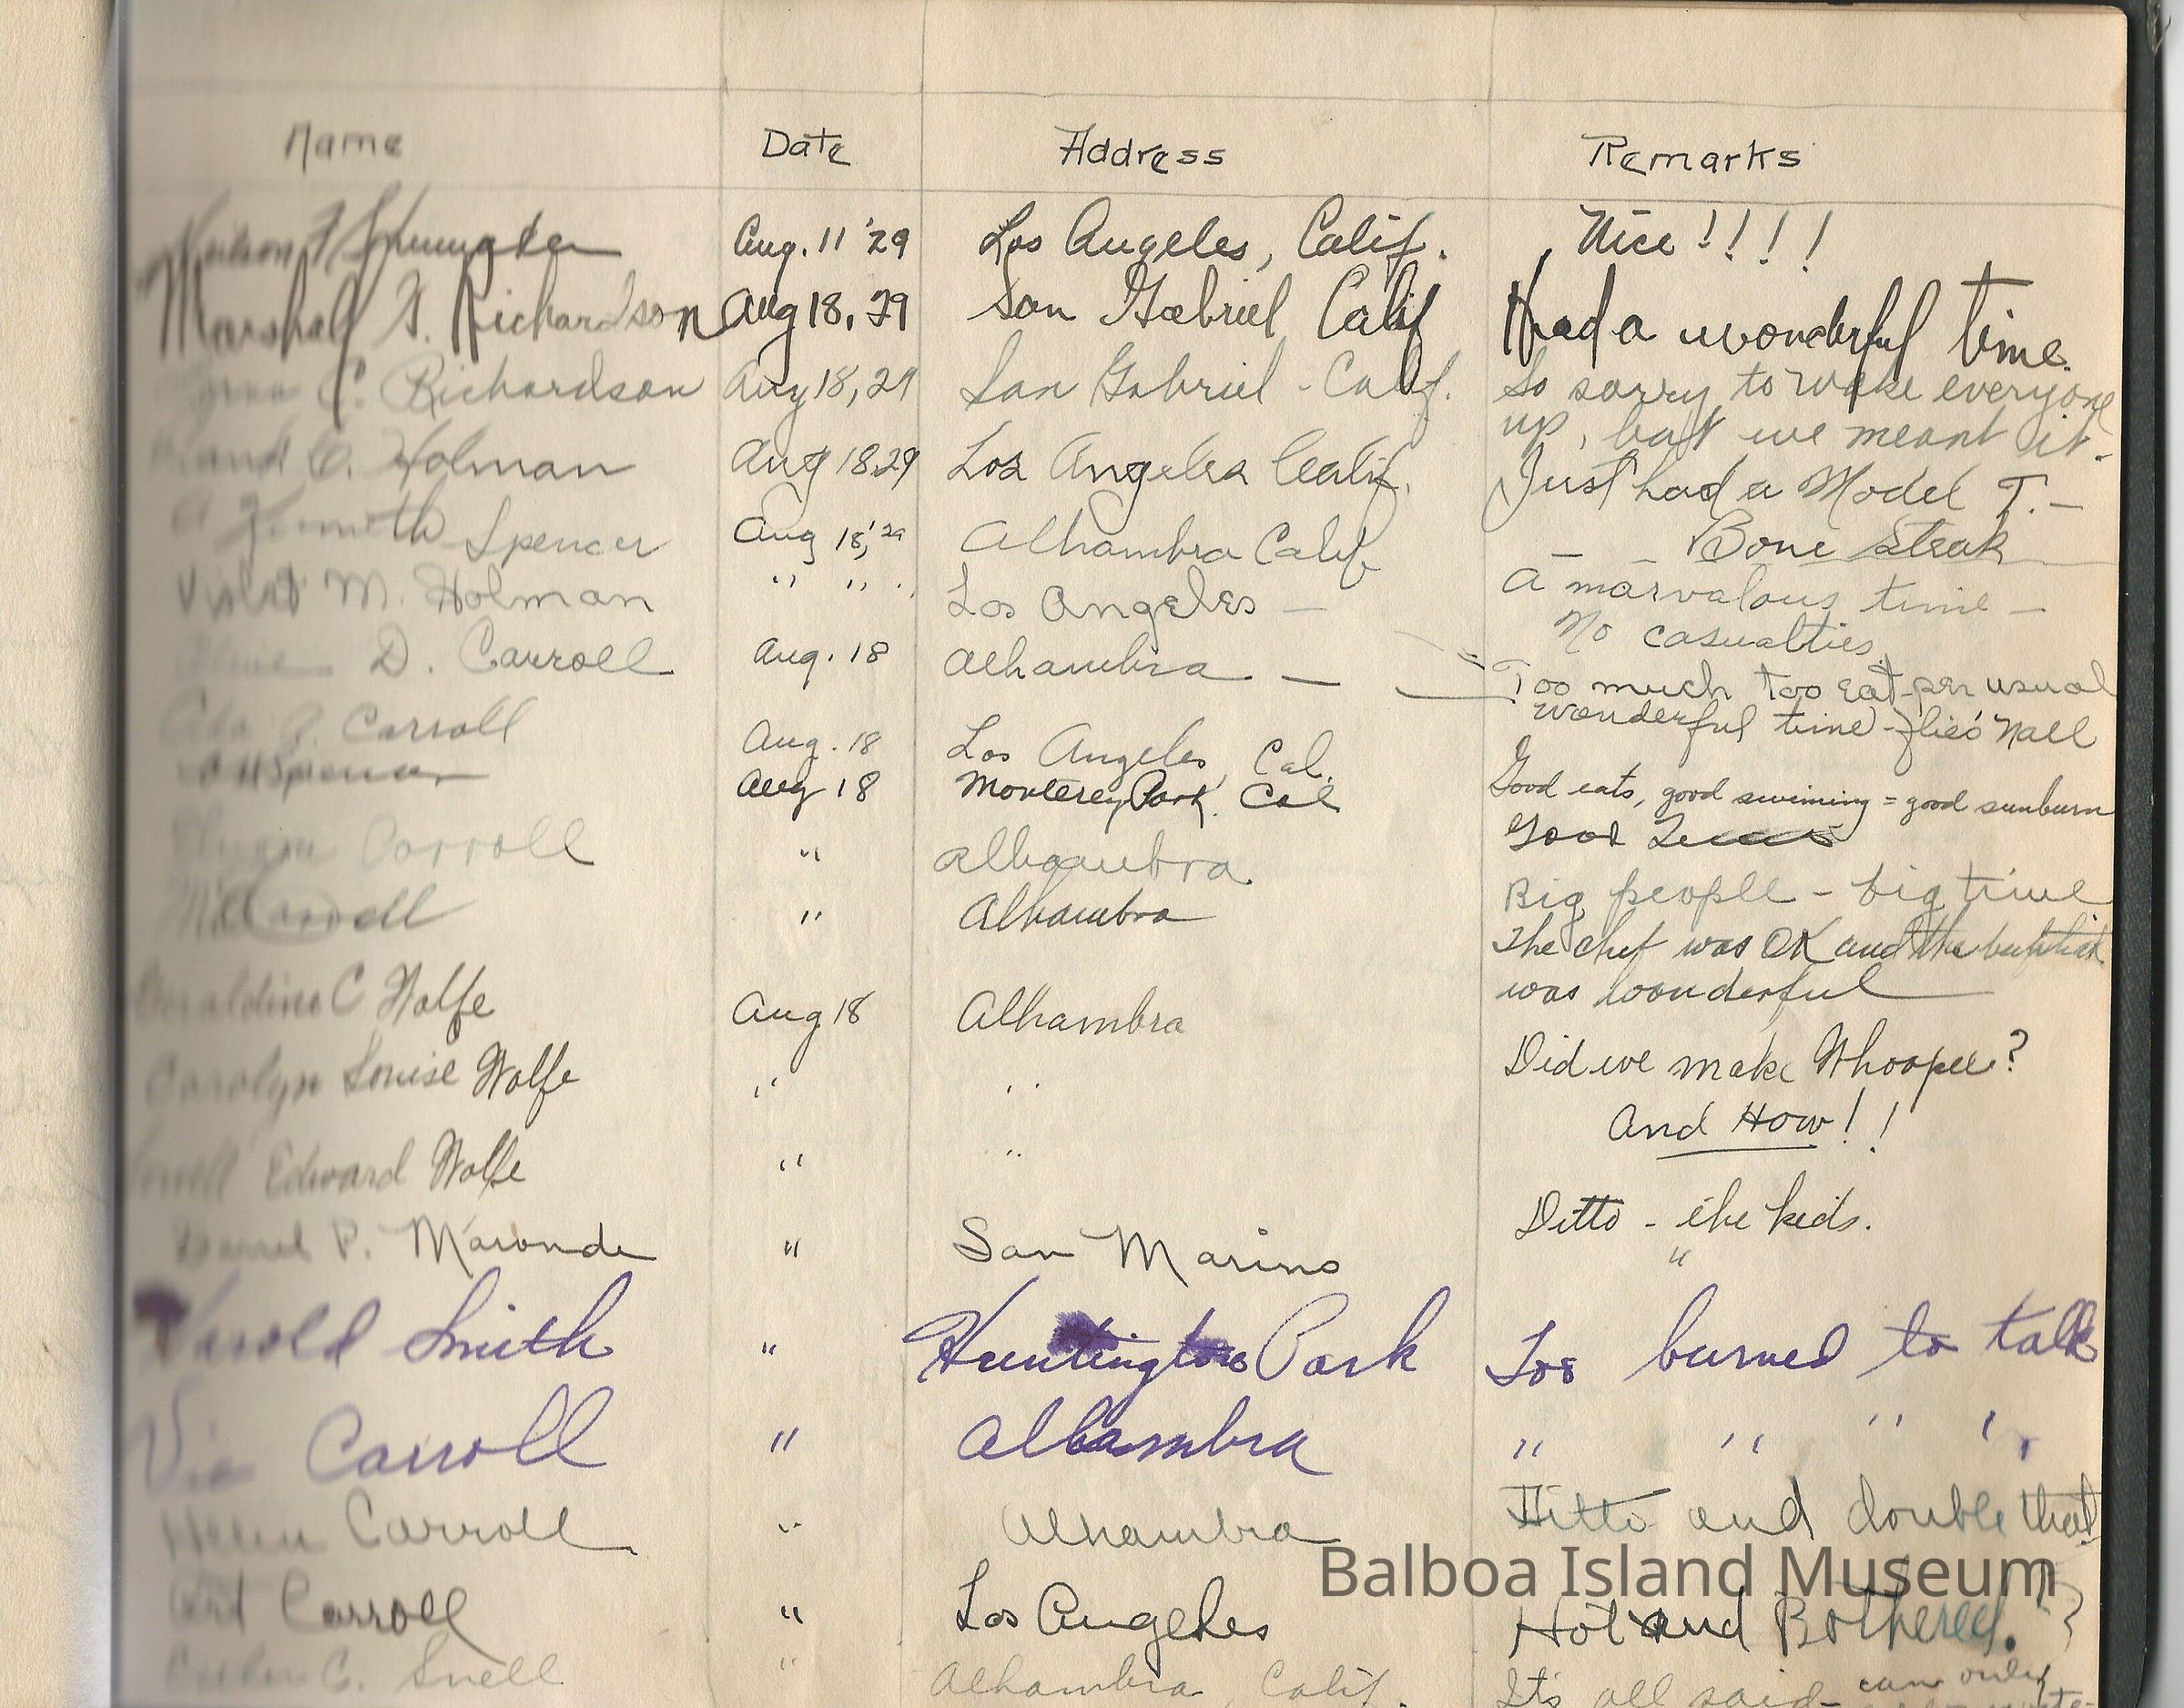 Name Date Address Remarks
Aug. 11 '29 Los Angeles, Calif. Nice!!!!
Marshall G. Richardson Aug 18, 29 San Gabriel Calif Had a wonderful time.
C. Richardson Aug 18, 29 San Gabriel - Calif. So sorry to wake everyone
up, but we meant it.
C. Holman Aug 18 29 Los Angeles Calif. Just had a Model T. -
Kenneth Spencer Aug 18, '29 Alhambra Calif - - Bone Steak
Violet M. Holman " " . Los Angeles - A marvalous time -
No casualties.
D. Carroll Aug. 18 Alhambra - Too much too eat per usual
Carroll Aug. 18 Los Angeles, Cal. wonderful time - flies n all
Spencer Aug 18 Monterey Park, Cal Good eats, good swiming = good sunburn
Good
Carroll " Alhambra Big people - big time
Carroll " Alhambra The chef was OK and the
was wonderful
Geraldine C Wolfe Aug 18 Alhambra Did we make Whoopee?
Carolyn Louise Wolfe " " And How!!
Edward Wolfe " " Ditto - the kids.
P. Maronde " San Marino "
Harold Smith " Huntington Park Too burned to talk
Vic Carroll " Alhambra " " " "
Helen Carroll " Alhambra Ditto and double that
Art Carroll " Los Angeles Hot and Bothered.
C. Snell " Alhambra, Calif. It's all said - can only
Balboa Island Museum